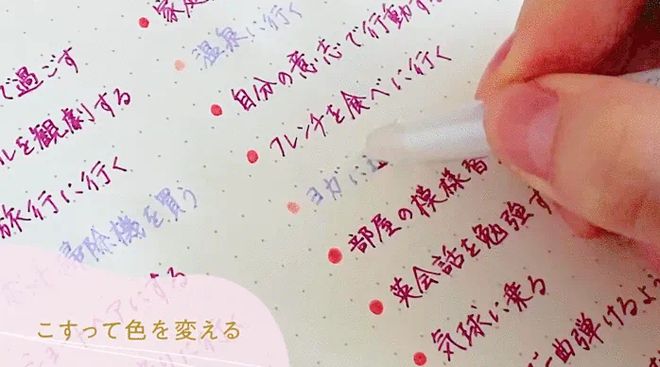 家庭
温泉に行く
自分の意志で行動する
フレンチを食べに行く
ヨガに
部屋の模様替
英会話を勉強す
気球に乗る
一曲弾けるよ
で過ごす
ルを観劇する
旅行に行く
掃除機を買う
にする
こすって色を変える